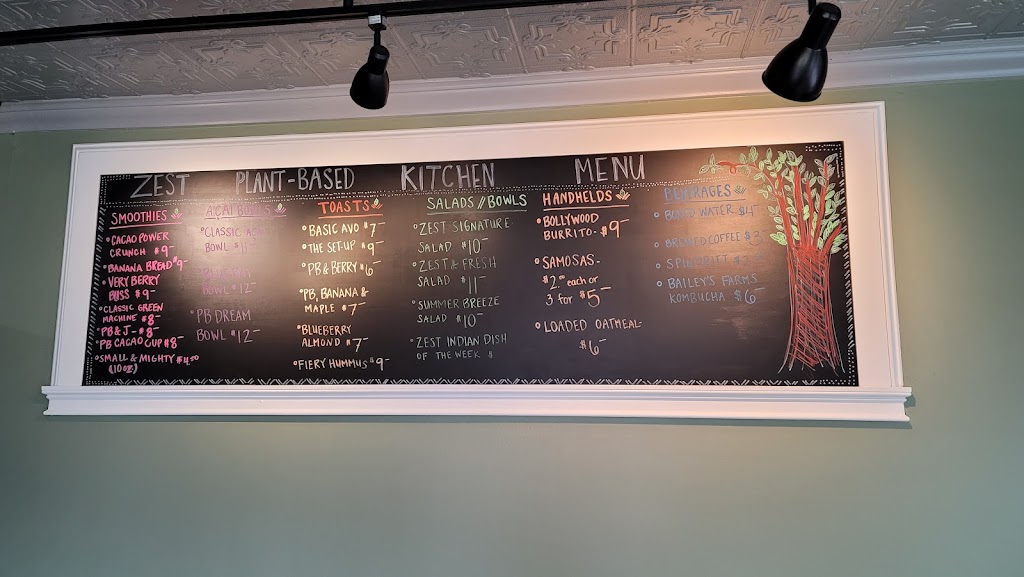 ZEST PLANT-BASED KITCHEN MENU
SMOOTHIES
• CACAO POWER
CRUNCH $9-
• BANANA BREAD $9-
• VERY BERRY
BLISS $9-
• CLASSIC GREEN
MACHINE $8-
• PB & J - $8-
• PB CACAO CUP $8-
• SMALL & MIGHTY $4.50
(10 OZ)
AÇAÍ BOWLS
• CLASSIC AÇAÍ
BOWL $11-
BOWL $12-
• PB DREAM
BOWL $12-
TOASTS
• BASIC AVO $7-
• THE SET-UP $9-
• PB & BERRY $6-
• PB, BANANA &
MAPLE $7-
• BLUEBERRY
ALMOND $7-
• FIERY HUMMUS $9-
SALADS // BOWLS
• ZEST SIGNATURE
SALAD $10-
• ZEST & FRESH
SALAD $11-
• SUMMER BREEZE
SALAD $10-
• ZEST INDIAN DISH
OF THE WEEK $
HANDHELDS
• BOLLYWOOD
BURRITO - $9-
• SAMOSAS -
$2.00 each or
3 for $5-
• LOADED OATMEAL -
$6-
BEVERAGES
• BOXED WATER $4
• BREWED COFFEE $3
• SPINDRIFT
• BAILEY'S FARMS
KOMBUCHA $6-